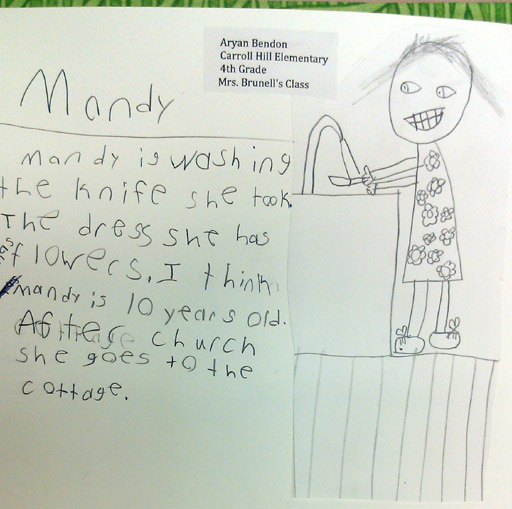 Aryan Bendon
Carroll Hill Elementary
4th Grade
Mrs. Brunell's Class
Mandy
mandy is washing
the knife she took.
The dress she has
is flowers. I think
mandy is 10 years old.
After church
she goes to the
cottage.